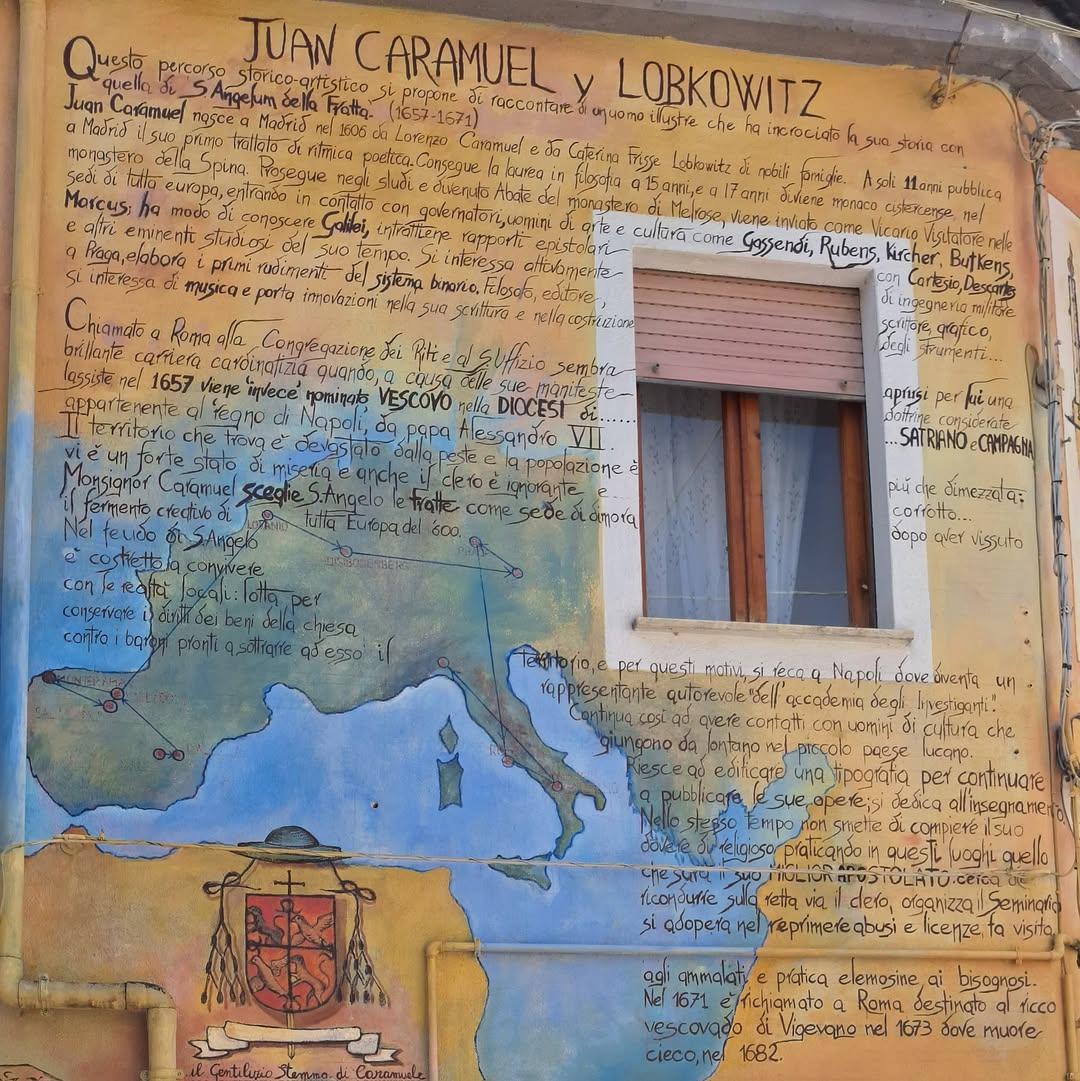 JUAN CARAMUEL y LOBKOWITZ
Questo percorso storico-artistico si propone di raccontare di un uomo illustre che ha incrociato la sua storia con
quella di S.Angelum della Fratta. (1657-1671)
Juan Caramuel nasce a Madrid nel 1606 da Lorenzo Caramuel e da Caterina Frisse Lobkowitz di nobili famiglie. A soli 11 anni pubblica
a Madrid il suo primo trattato di ritmica poetica. Consegue la laurea in filosofia a 15 anni, e a 17 anni diviene monaco cistercense, nel
monastero della Spina. Prosegue negli studi e divenuto Abate del monastero di Melrose, viene inviato come Vicario Visitatore nelle
sedi di tutta europa, entrando in contatto con governatori, uomini di arte e cultura come Gassendi, Rubens, Kircher, Butkens,
Marcus; ha modo di conoscere Galilei, intrattiene rapporti epistolari con Cartesio, Descartes
e altri eminenti studiosi del suo tempo. Si interessa attivamente di ingegneria militare
a Praga, elabora i primi rudimenti del sistema binario. Filosofo, editore, scrittore, grafico,
si interessa di musica e porta innovazioni nella sua scrittura e nella costruzione degli strumenti...
Chiamato a Roma alla Congregazione dei Riti e al S.Uffizio sembra aprirsi per lui una
brillante carriera cardinalizia quando, a causa delle sue manifeste dottrine considerate
lassiste nel 1657 viene invece nominato VESCOVO nella DIOCESI di...... ...SATRIANO e CAMPAGNA
appartenente al regno di Napoli, da papa Alessandro VII.
Il territorio che trova è devastato dalla peste e la popolazione è più che dimezzata;
vi è un forte stato di miseria e anche il clero è ignorante e... corrotto...
Monsignor Caramuel sceglie S.Angelo le fratte come sede di dimora dopo aver vissuto
il fermento creativo di tutta Europa del '600.
Nel feudo di S.Angelo
è costretto a convivere
con le realtà locali: lotta per
conservare i diritti dei beni della chiesa
contro i baroni pronti a sottrarre ad esso il
territorio, e per questi motivi si reca a Napoli dove diventa un
rappresentante autorevole "dell'accademia degli Investiganti".
Continua così ad avere contatti con uomini di cultura che
giungono da lontano nel piccolo paese lucano.
Riesce ad edificare una tipografia per continuare
a pubblicare le sue opere; si dedica all'insegnamento
Nello stesso tempo non smette di compiere il suo
dovere di religioso praticando in questi luoghi quello
che sarà il suo MIGLIOR APOSTOLATO: cerca di
ricondurre sulla retta via il clero, organizza il Seminario
si adopera nel reprimere abusi e licenze, fa visita
agli ammalati e pratica elemosine ai bisognosi.
Nel 1671 è richiamato a Roma destinato al ricco
vescovado di Vigevano nel 1673 dove muore
cieco, nel 1682.
LOVANIO
DISIBODENBERG
PRAGA
TOLEDO
il Gentilizio Stemma di Caramuele